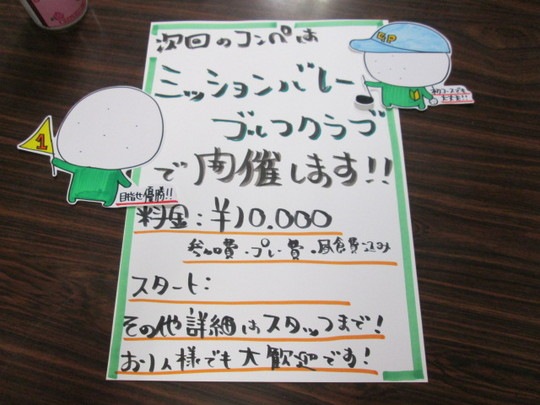 次回のコンペは
ミッションバレー
ゴルフクラブ
で開催します!!
料金:¥10,000
参加費・プレー費・昼食費込み
スタート:
その他詳細はスタッフまで!
お1人様でも大歓迎です!
1
目指せ優勝!!
GP